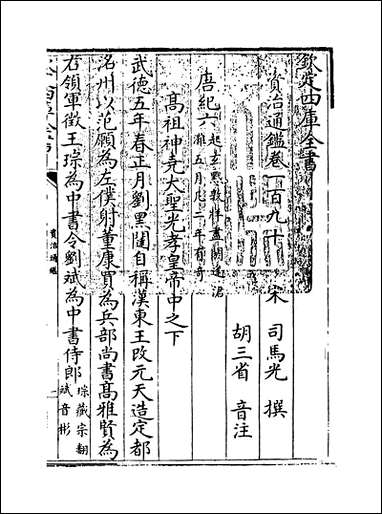 欽定四庫全書
資治通鑑卷一百九十
宋 司馬光 撰
胡三省 音注
唐紀六起玄黓敦牂盡閼逢涒
灘五月凡二年有奇
高祖神堯大聖光孝皇帝中之下
武德五年春正月劉黑闥自稱漢東王改元天造定都
洺州以范願為左僕射董康買為兵部尚書高雅賢為
右領軍徵王琮為中書令劉斌為中書侍郎琮藏宗翻
斌音彬
資治通鑑